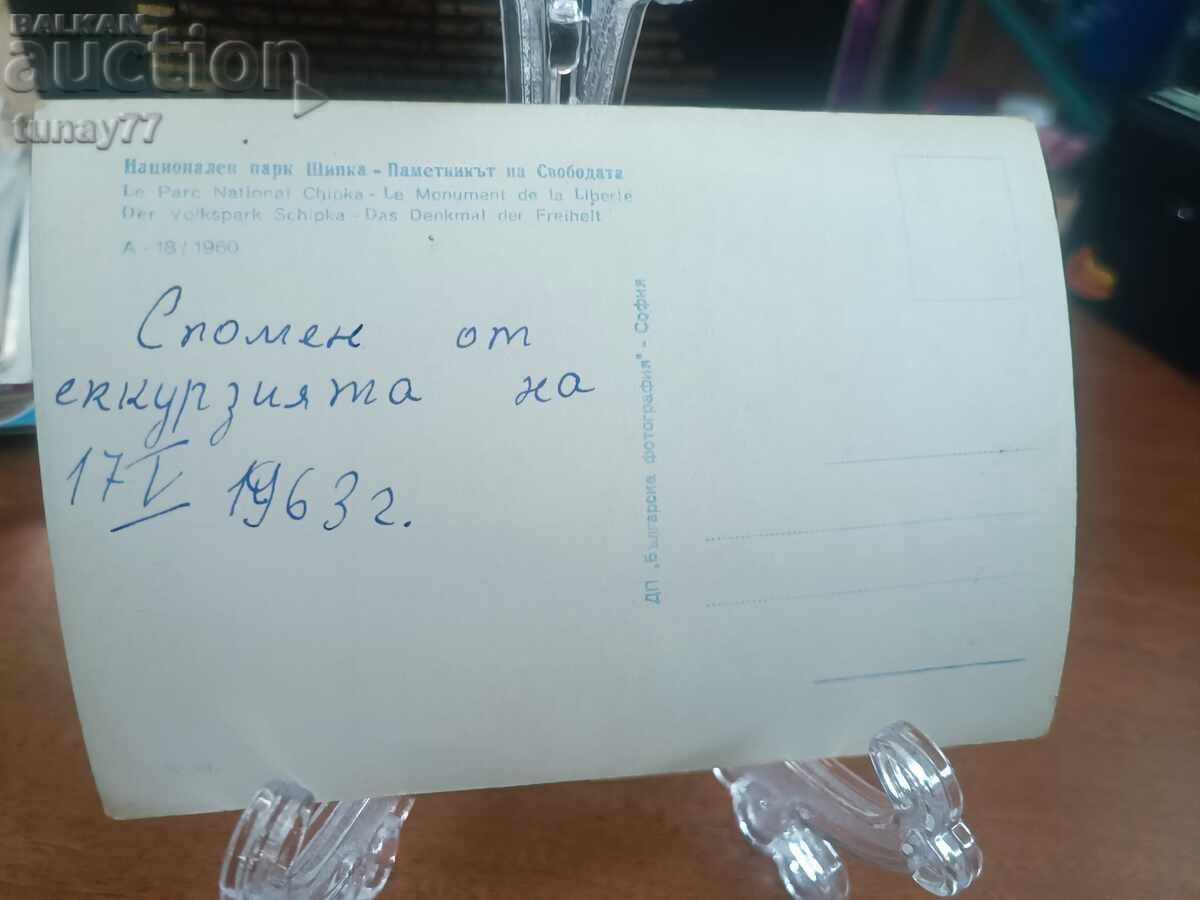 BALKAN
auction
tunay77
Национален парк Шипка - Паметникът на Свободата
Le Parc National Chipka - Le Monument de la Liberté
Der Volkspark Schipka - Das Denkmal der Freiheit
А - 18 / 1960
Спомен от
еккурзията на
17 V 1963 г.
ДП „Българска фотография" - София